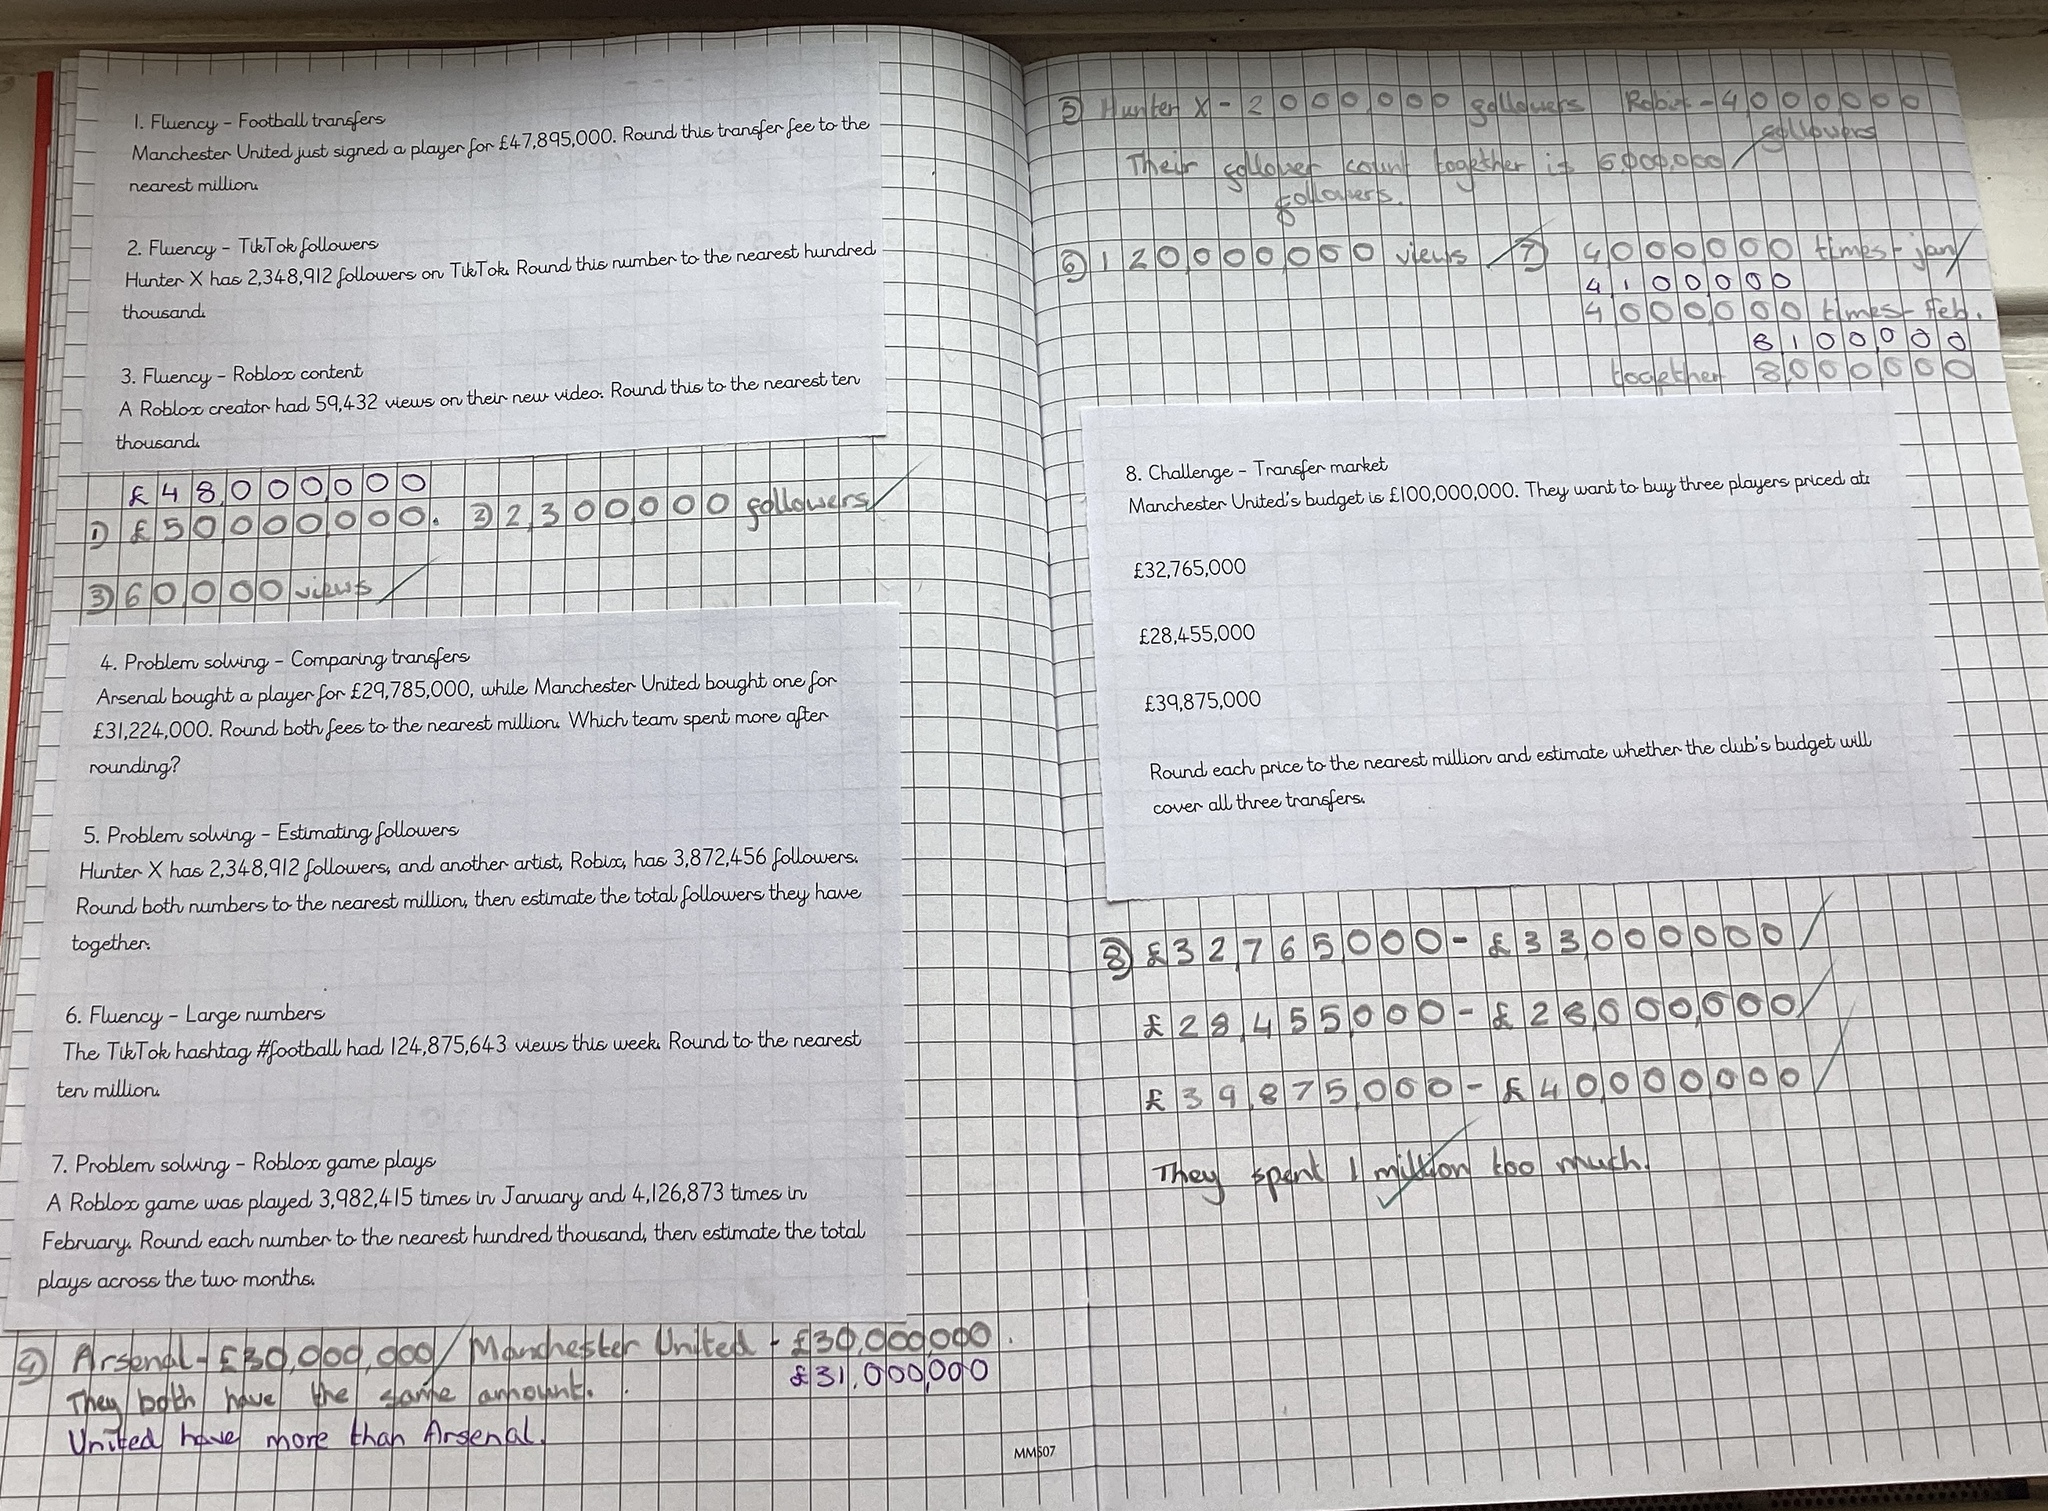 1. Fluency - Football transfers
Manchester United just signed a player for £47,895,000. Round this transfer fee to the
nearest million.
2. Fluency - TikTok followers
Hunter X has 2,348,912 followers on TikTok. Round this number to the nearest hundred
thousand.
3. Fluency - Roblox content
A Roblox creator had 59,432 views on their new video. Round this to the nearest ten
thousand.
£48,000,000
1) £50,000,000. 2) 2,300,000 followers
3) 60,000 views
4. Problem solving - Comparing transfers
Arsenal bought a player for £29,785,000, while Manchester United bought one for
£31,224,000. Round both fees to the nearest million. Which team spent more after
rounding?
5. Problem solving - Estimating followers
Hunter X has 2,348,912 followers, and another artist, Robix, has 3,872,456 followers.
Round both numbers to the nearest million, then estimate the total followers they have
together.
6. Fluency - Large numbers
The TikTok hashtag #football had 124,875,643 views this week. Round to the nearest
ten million.
7. Problem solving - Roblox game plays
A Roblox game was played 3,982,415 times in January and 4,126,873 times in
February. Round each number to the nearest hundred thousand, then estimate the total
plays across the two months.
4) Arsenal - £30,000,000 Manchester United - £30,000,000.
£31,000,000
They both have the same amount.
United have more than Arsenal.
MM507
5) Hunter X - 2000,000 followers Robix - 4,000000
followers
Their follower count together is 6,000,000
followers.
6) 120,000,000 views 7) 4000,000 times - jan
4,100000
4000,000 times - feb.
8,100,000
together 8,000000
8. Challenge - Transfer market
Manchester United's budget is £100,000,000. They want to buy three players priced at:
£32,765,000
£28,455,000
£39,875,000
Round each price to the nearest million and estimate whether the club's budget will
cover all three transfers.
8) £32,765,000 - £33,000,000
£28,455,000 - £28,000,000
£39,875,000 - £40,000,000
They spent 1 million too much.